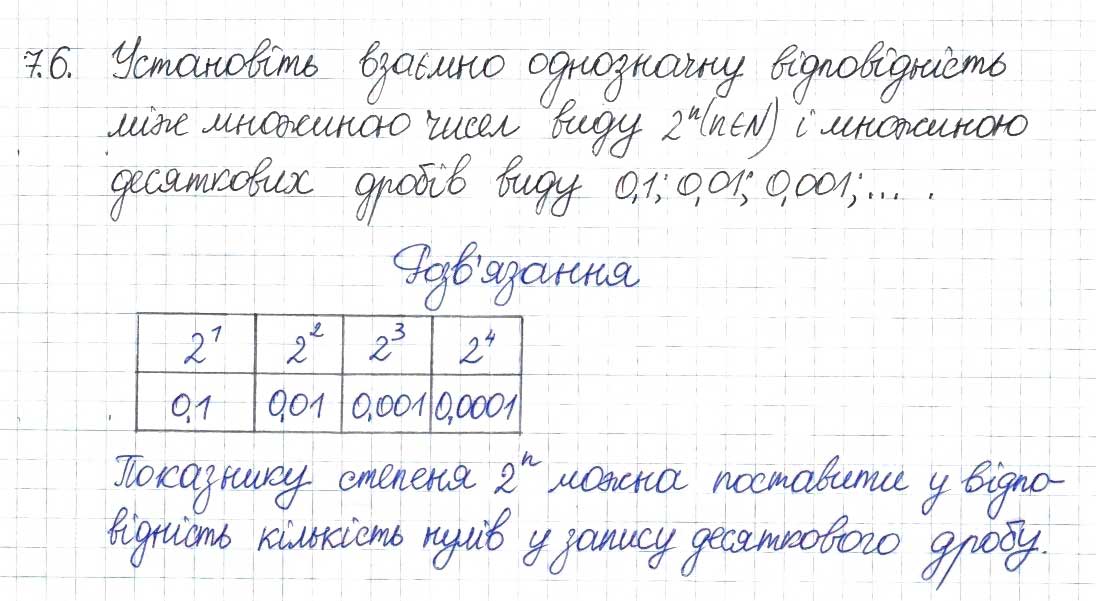 7.6. Установіть взаємно однозначну відповідність
між множиною чисел виду 2ⁿ(n∈N) і множиною
десяткових дробів виду 0,1; 0,01; 0,001; ... .
Розв'язання
2¹ 2² 2³ 2⁴
0,1 0,01 0,001 0,0001
Показнику степеня 2ⁿ можна поставити у відпо-
відність кількість нулів у запису десяткового дробу.